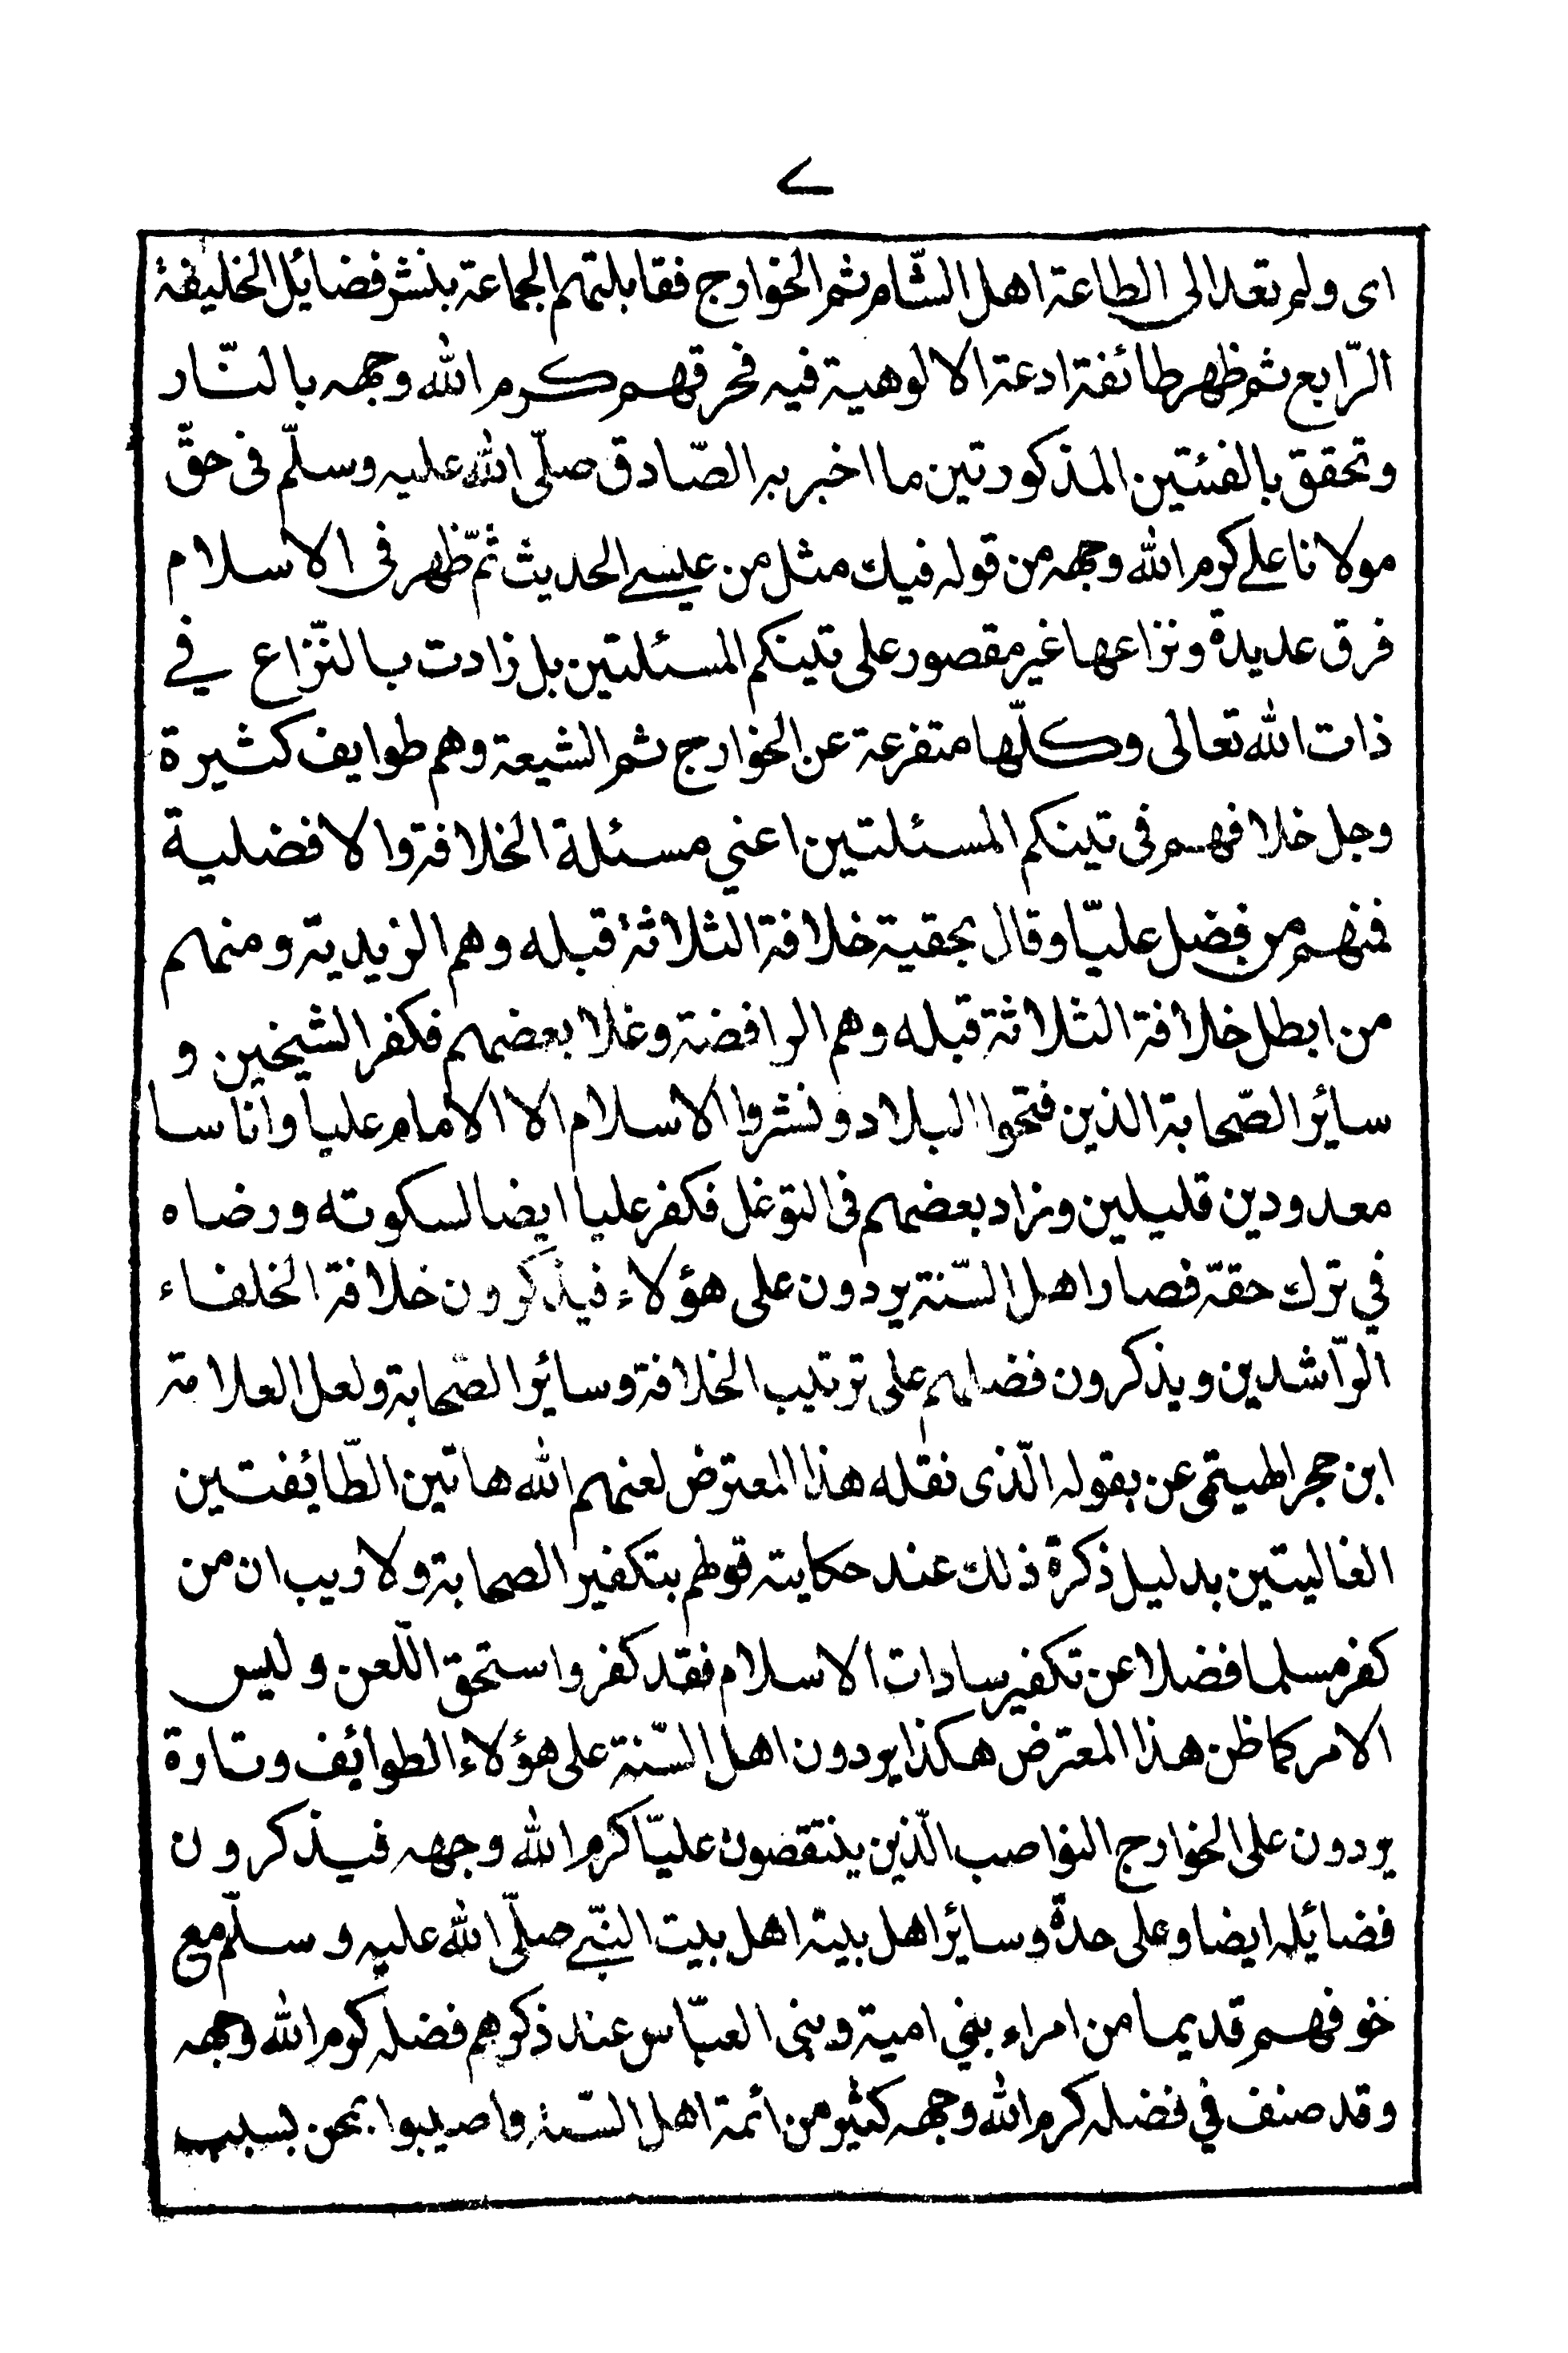 ٧
اى ولم تعد الى الطاعة اهل الشّام ثم الخوارج فقابلتهم الجماعة بنشر فضايل الخليفة
الرّابع ثم ظهر طائفة ادعة الالوهية فيه فحرقهم كرم الله وجهه بالنّار
وتحقق بالفئتين المذكورتين ما اخبر به الصّادق صلّى الله عليه وسلّم فى حقّ
مولانا على كرم الله وجهه من قوله فيك مثل من عيسى الحديث ثمّ ظهر فى الاسلام
فرق عديدة ونزاعها غير مقصور على تينكم المسئلتين بل زادت بالنّزاع في
ذات الله تعالى وكلّها متفرعة عن الخوارج ثم الشيعة وهم طوايف كثيرة
وجل خلافهم فى تينكم المسئلتين اعني مسئلة الخلافة والافضلية
فمنهم من فضل عليّا وقال بحقية خلافة الثلاثة قبله وهم الزيدية ومنهم
من ابطل خلافة الثلاثة قبله وهم الرافضة وغلا بعضهم فكفر الشيخين و
سائر الصّحابة الذين فتحوا البلاد ونشروا الاسلام الا الامام عليا واناسا
معدودين قليلين وزاد بعضهم فى التوغل فكفر عليا ايضا لسكوته ورضاه
في ترك حقّه فصار اهل السّنة يردون على هؤلاء فيذكرون خلافة الخلفاء
الرّاشدين ويذكرون فضلهم على ترتيب الخلافة وسائر الصّحابة ولعل العلامة
ابن حجر الهيتمى عن بقوله الّذى نقله هذا المعترض لعنهم الله هاتين الطّائفتين
الغاليتين بدليل ذكرة ذلك عند حكايته قولهم بتكفير الصحابة ولا ريب ان من
كفر مسلما فضلا عن تكفير سادات الاسلام فقد كفر واستحق اللّعن وليس
الامر كما ظن هذا المعترض هكذا يردون اهل السّنة على هؤلاء الطوائف وتارة
يردون على الخوارج النواصب الّذين ينتقصون عليّا كرم الله وجهه فيذكرون
فضائله ايضا وعلى حدة وسائر اهل بيته اهل بيت النبّي صلّى الله عليه وسلّم مع
خوفهم قديما من امراء بني امية وبنى العبّاس عند ذكرهم فضله كرم الله وجهه
وقد صنف في فضله كرم الله وجهه كثير من ائمة اهل السّنة واصيبوا بمحن بسبب